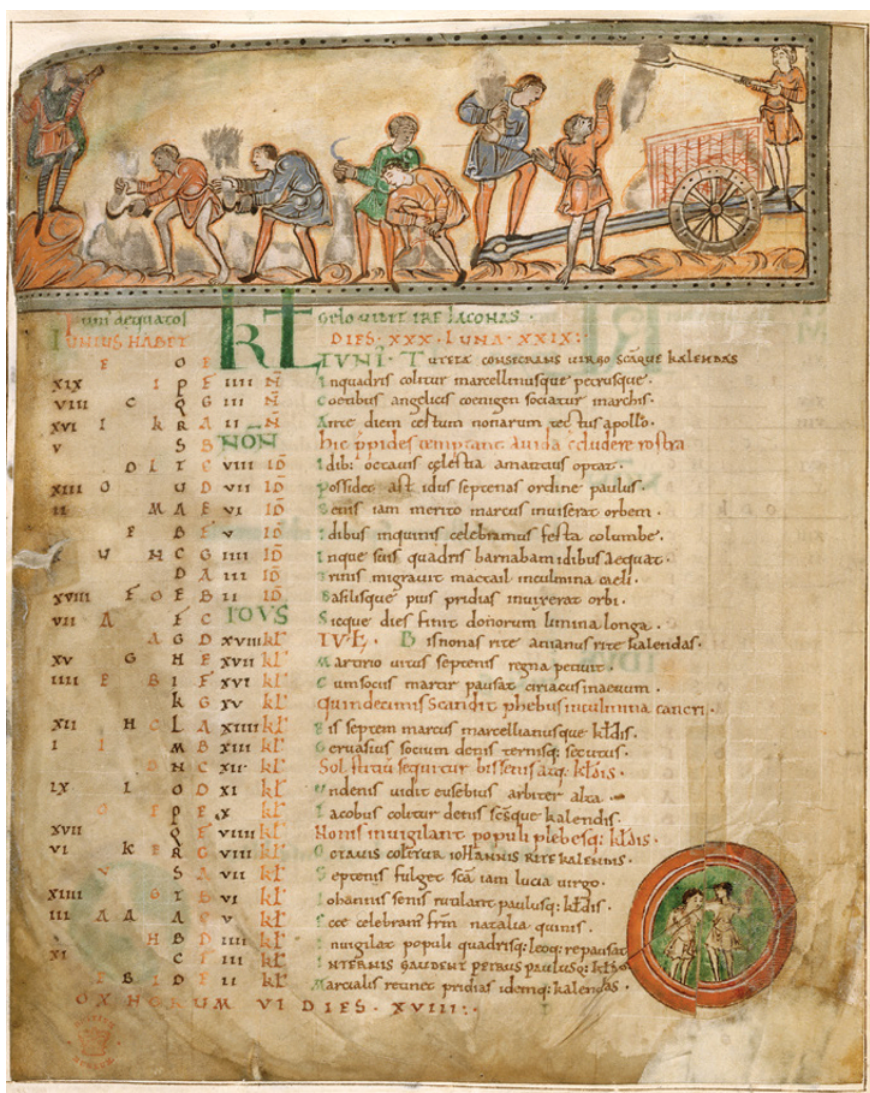 Iunius aequatos KL caelo uidit ire laconas.
IUNIUS HABET DIES · XXX · LUNA · XXIX :
E O E IUNI · T consecrans uirgo kalendas
XIX I P F IIII N Inquadris colitur marcellinusque petrusque ·
VIII C Q G III N Coetibus angelicis sociatur ·
XVI I K R A II N Ante diem nonarum apollo ·
V S B NON Hic auida rostra
D L T C VIII ID Idib: octauis celestia optat ·
XIII O U D VII ID Possidet ast idus septenas ordine paulus ·
II M A E VI ID Senis iam merito marcus inuiserat orbem ·
F B F V ID Idibus inquinis celebramus festa columbe ·
U N C G IIII ID Inque suis quadris barnaban idibus aequat ·
D A III ID Trinis migrauit inculmina caeli ·
XVIII F O E B II ID Basilisque pius pridias orbi ·
VII A F C IDUS Sicque dies finit donorum lumina longa ·
A G D XVIII kl IULI · Bisnonas rite rite kalendas ·
XV G H E XVII kl Martirio uitus septenis regna petiuit ·
IIII P B I F XVI kl Cumsociis martir pausat ciriacus inaeuum ·
K G XV kl Quindecimis scandit phebus inculmina cancri ·
XII H C L A XIIII kl Bis septem marcus marcellianusque kldis ·
I I M B XIII kl Geruasius socium denis ternisq: secutus ·
D N C XII kl Sol sequitur bissenis atq: kldis ·
IX L O D XI kl Undenis uidit eusebius arbiter alta ·
P E X kl Iacobus colitur denis kalendis ·
XVII Q F VIIII kl Nonis inuigilant populi plebesq: kldis ·
VI K F R G VIII kl Octauis colitur iohannis rite kalendis ·
S A VII kl Septenis fulget sca iam lucia uirgo ·
XIIII G T B VI kl Iohannis senis rutilant paulusq: kldis ·
III A A A C V kl Ecce celebrant natalia quinis ·
H B D IIII kl Inuigilat populi quadrisq: leoq: repausat
XI C E III kl Internis gaudent petrus paulusq: klds
F B I D F II kl Martialis pridias idemq: kalendas ·
NOX HORARUM VI DIES · XVIII :·